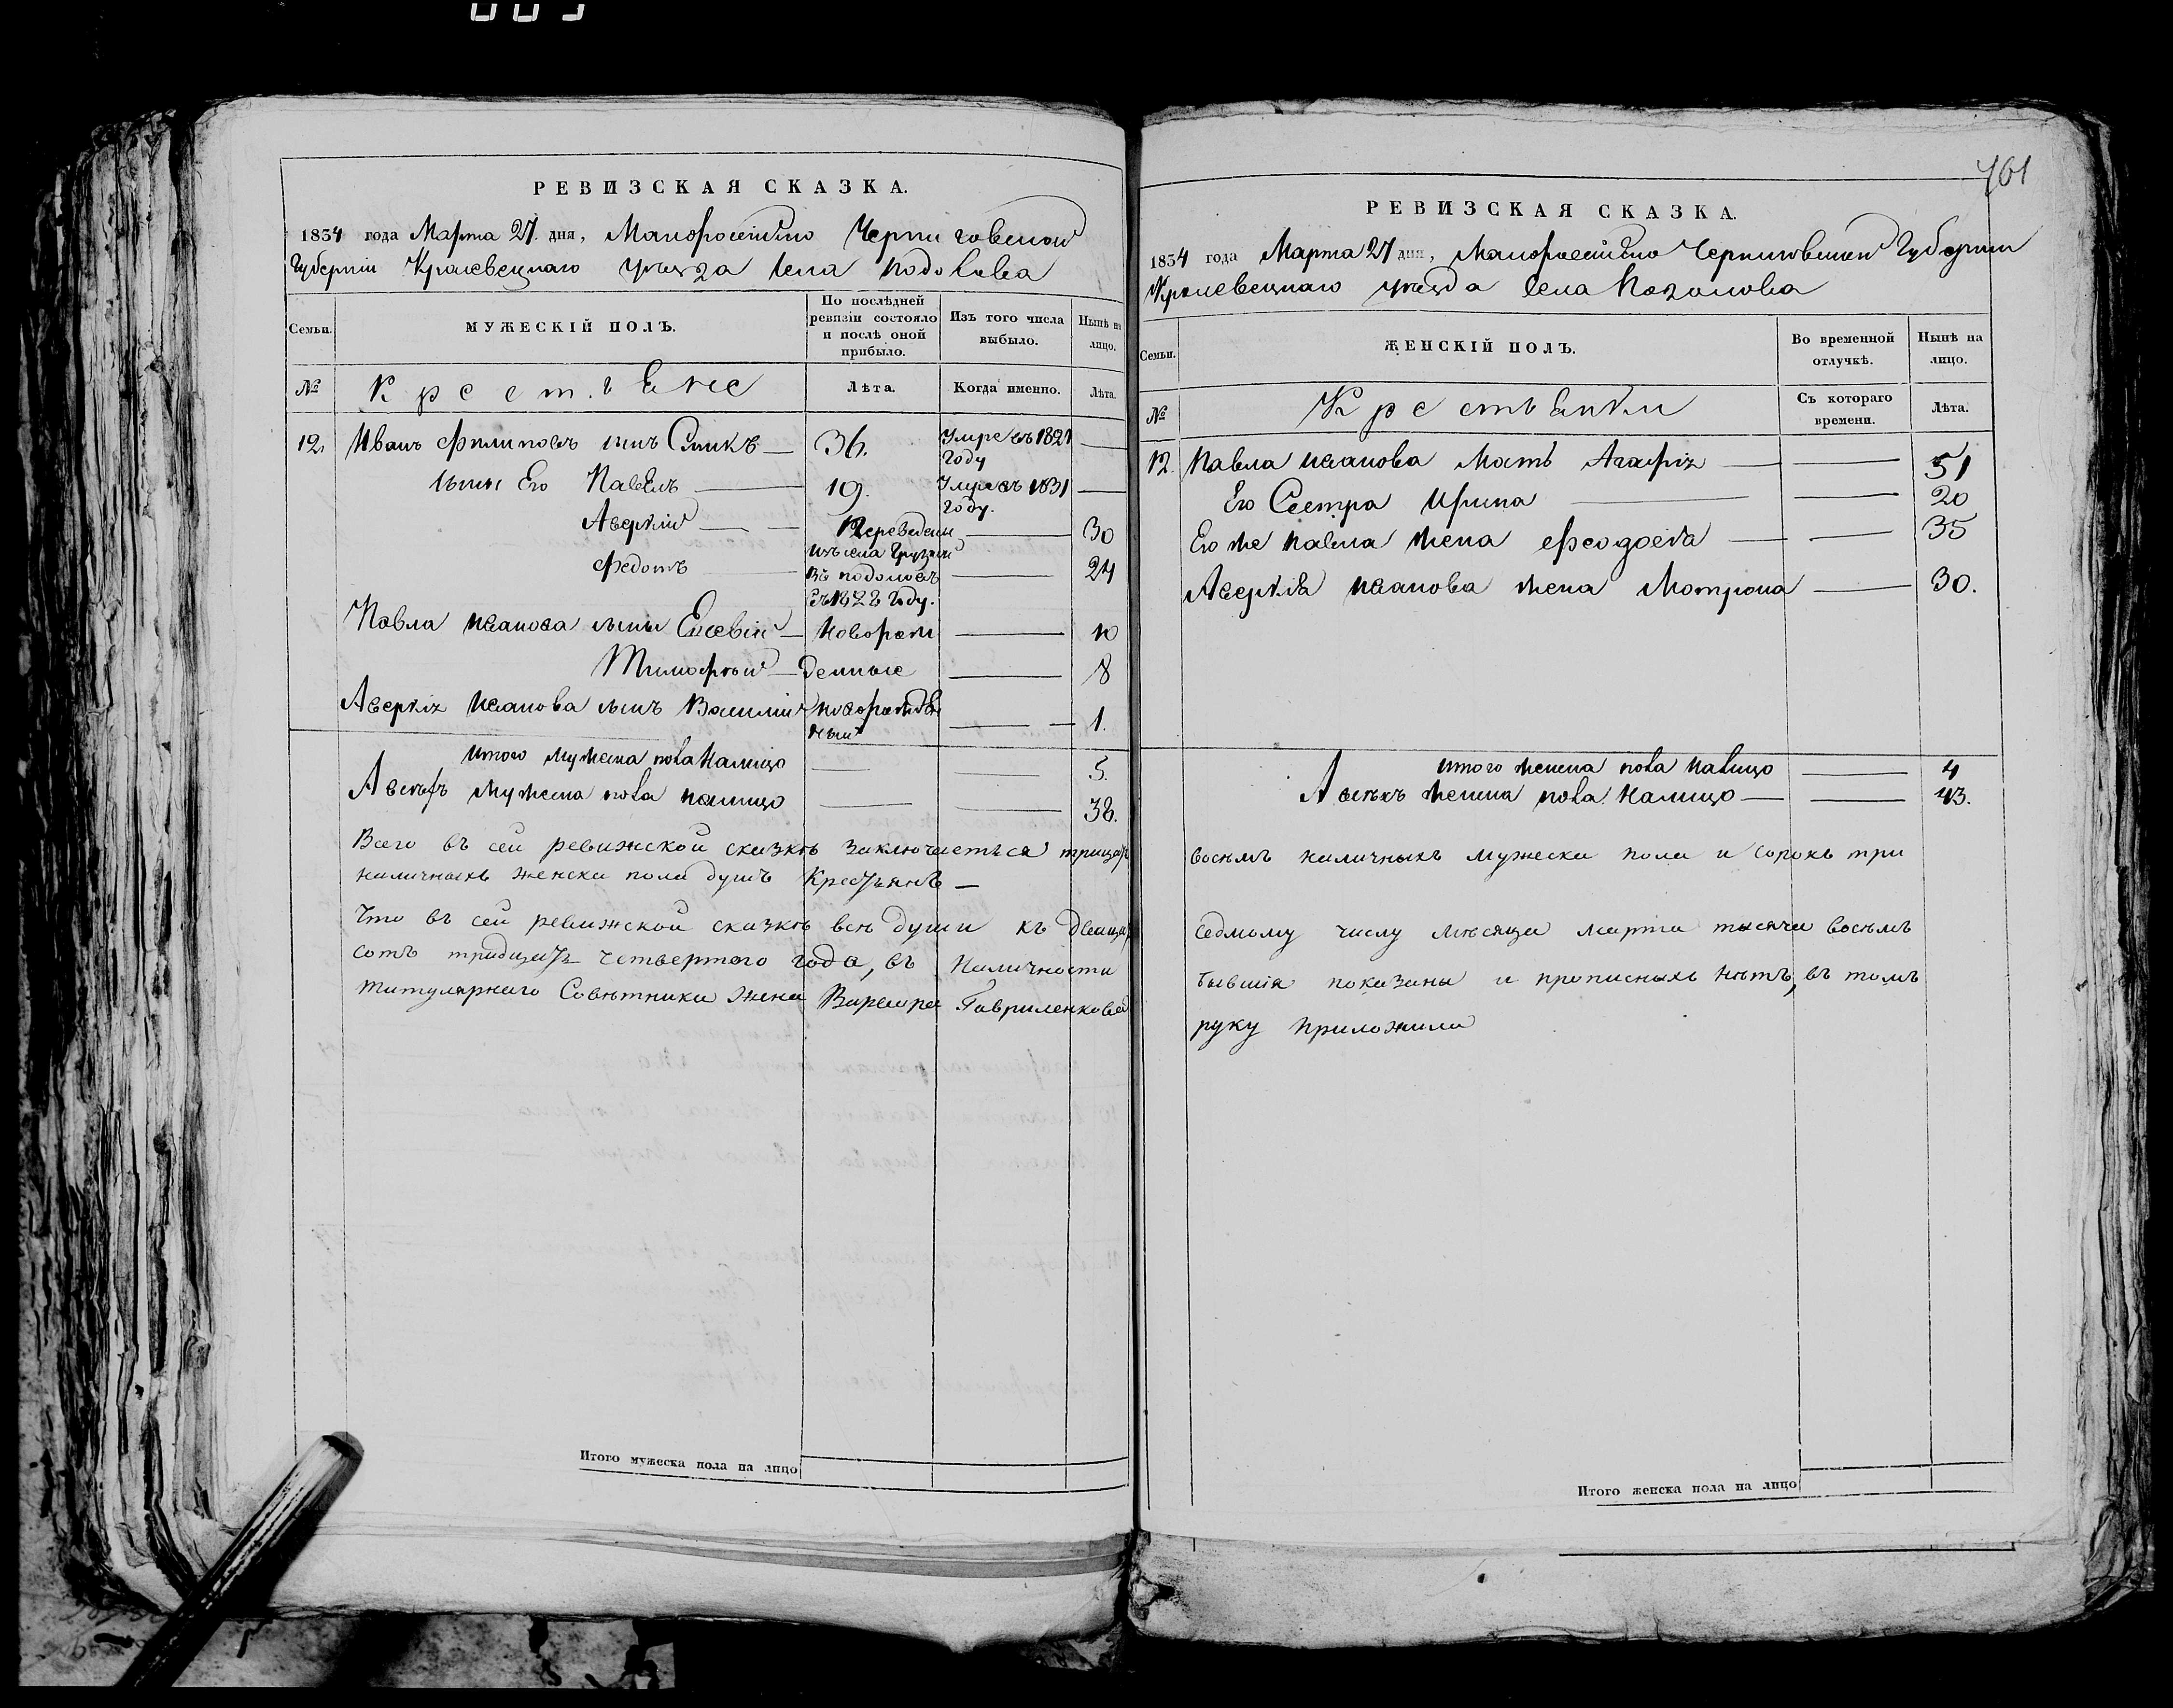 РЕВИЗСКАЯ СКАЗКА.
1834 года Марта 27. дня, Малоросійско Черниговской
Губерніи Кролевецкаго уѣзда села Подолова
Семьи.
МУЖЕСКІЙ ПОЛЪ.
По послѣдней ревизіи состояло и послѣ оной прибыло.
Изъ того числа выбыло.
Нынѣ на лицо.
№
Крестьяне
Лѣта.
Когда именно.
Лѣта.
12. Иванъ Филиповъ сынъ 36. Умре въ 1821 году —
сыны Его Павелъ — 19. Умре въ 1831 году. —
Аверкій — Переведены — 30
Федотъ изъ села Грузкой въ Подоловъ въ 1828 году. — 24
Павла Иванова сыны Евсевій — Новорож — 10
Тимофѣй — денные — 8
Аверкія Иванова сынъ Василій новорожденный — 1.
Итого мужеска пола налицо — — 5.
А всѣхъ мужеска пола налицо — — 38.
Всего въ сей ревижской сказкѣ заключается трицать
наличныхъ женска пола душъ Крестьянъ —
Что въ сей ревижской сказкѣ всѣ души къ двацать
сотъ тридцать четвертого года, въ наличности
титулярнаго Совѣтника жена Варвара Гавриленкова
Итого мужеска пола на лицо
761
РЕВИЗСКАЯ СКАЗКА.
1834 года Марта 27 дня, Малоросійско Черниговской Губерніи
Кролевецкаго уѣзда села Подолова
Семьи.
ЖЕНСКІЙ ПОЛЪ.
Во временной отлучкѣ.
Нынѣ на лицо.
№
Крестьянки
Съ котораго времени.
Лѣта.
12. Павла Иванова Мать Агафія — — 51
Его Сестра Ирина — — 20
Его же Павла жена Феодосія — — 35
Аверкія Иванова жена Мотрона — 30.
Итого женска пола налицо — 4
А всѣхъ женска пола налицо — — 43.
восѣмъ наличныхъ мужеска пола и сорокъ три
седмому числу мѣсяца марта тысяча восѣмъ
бывшія показаны и прописныхъ нѣтъ, въ томъ
руку приложила
Итого женска пола на лицо